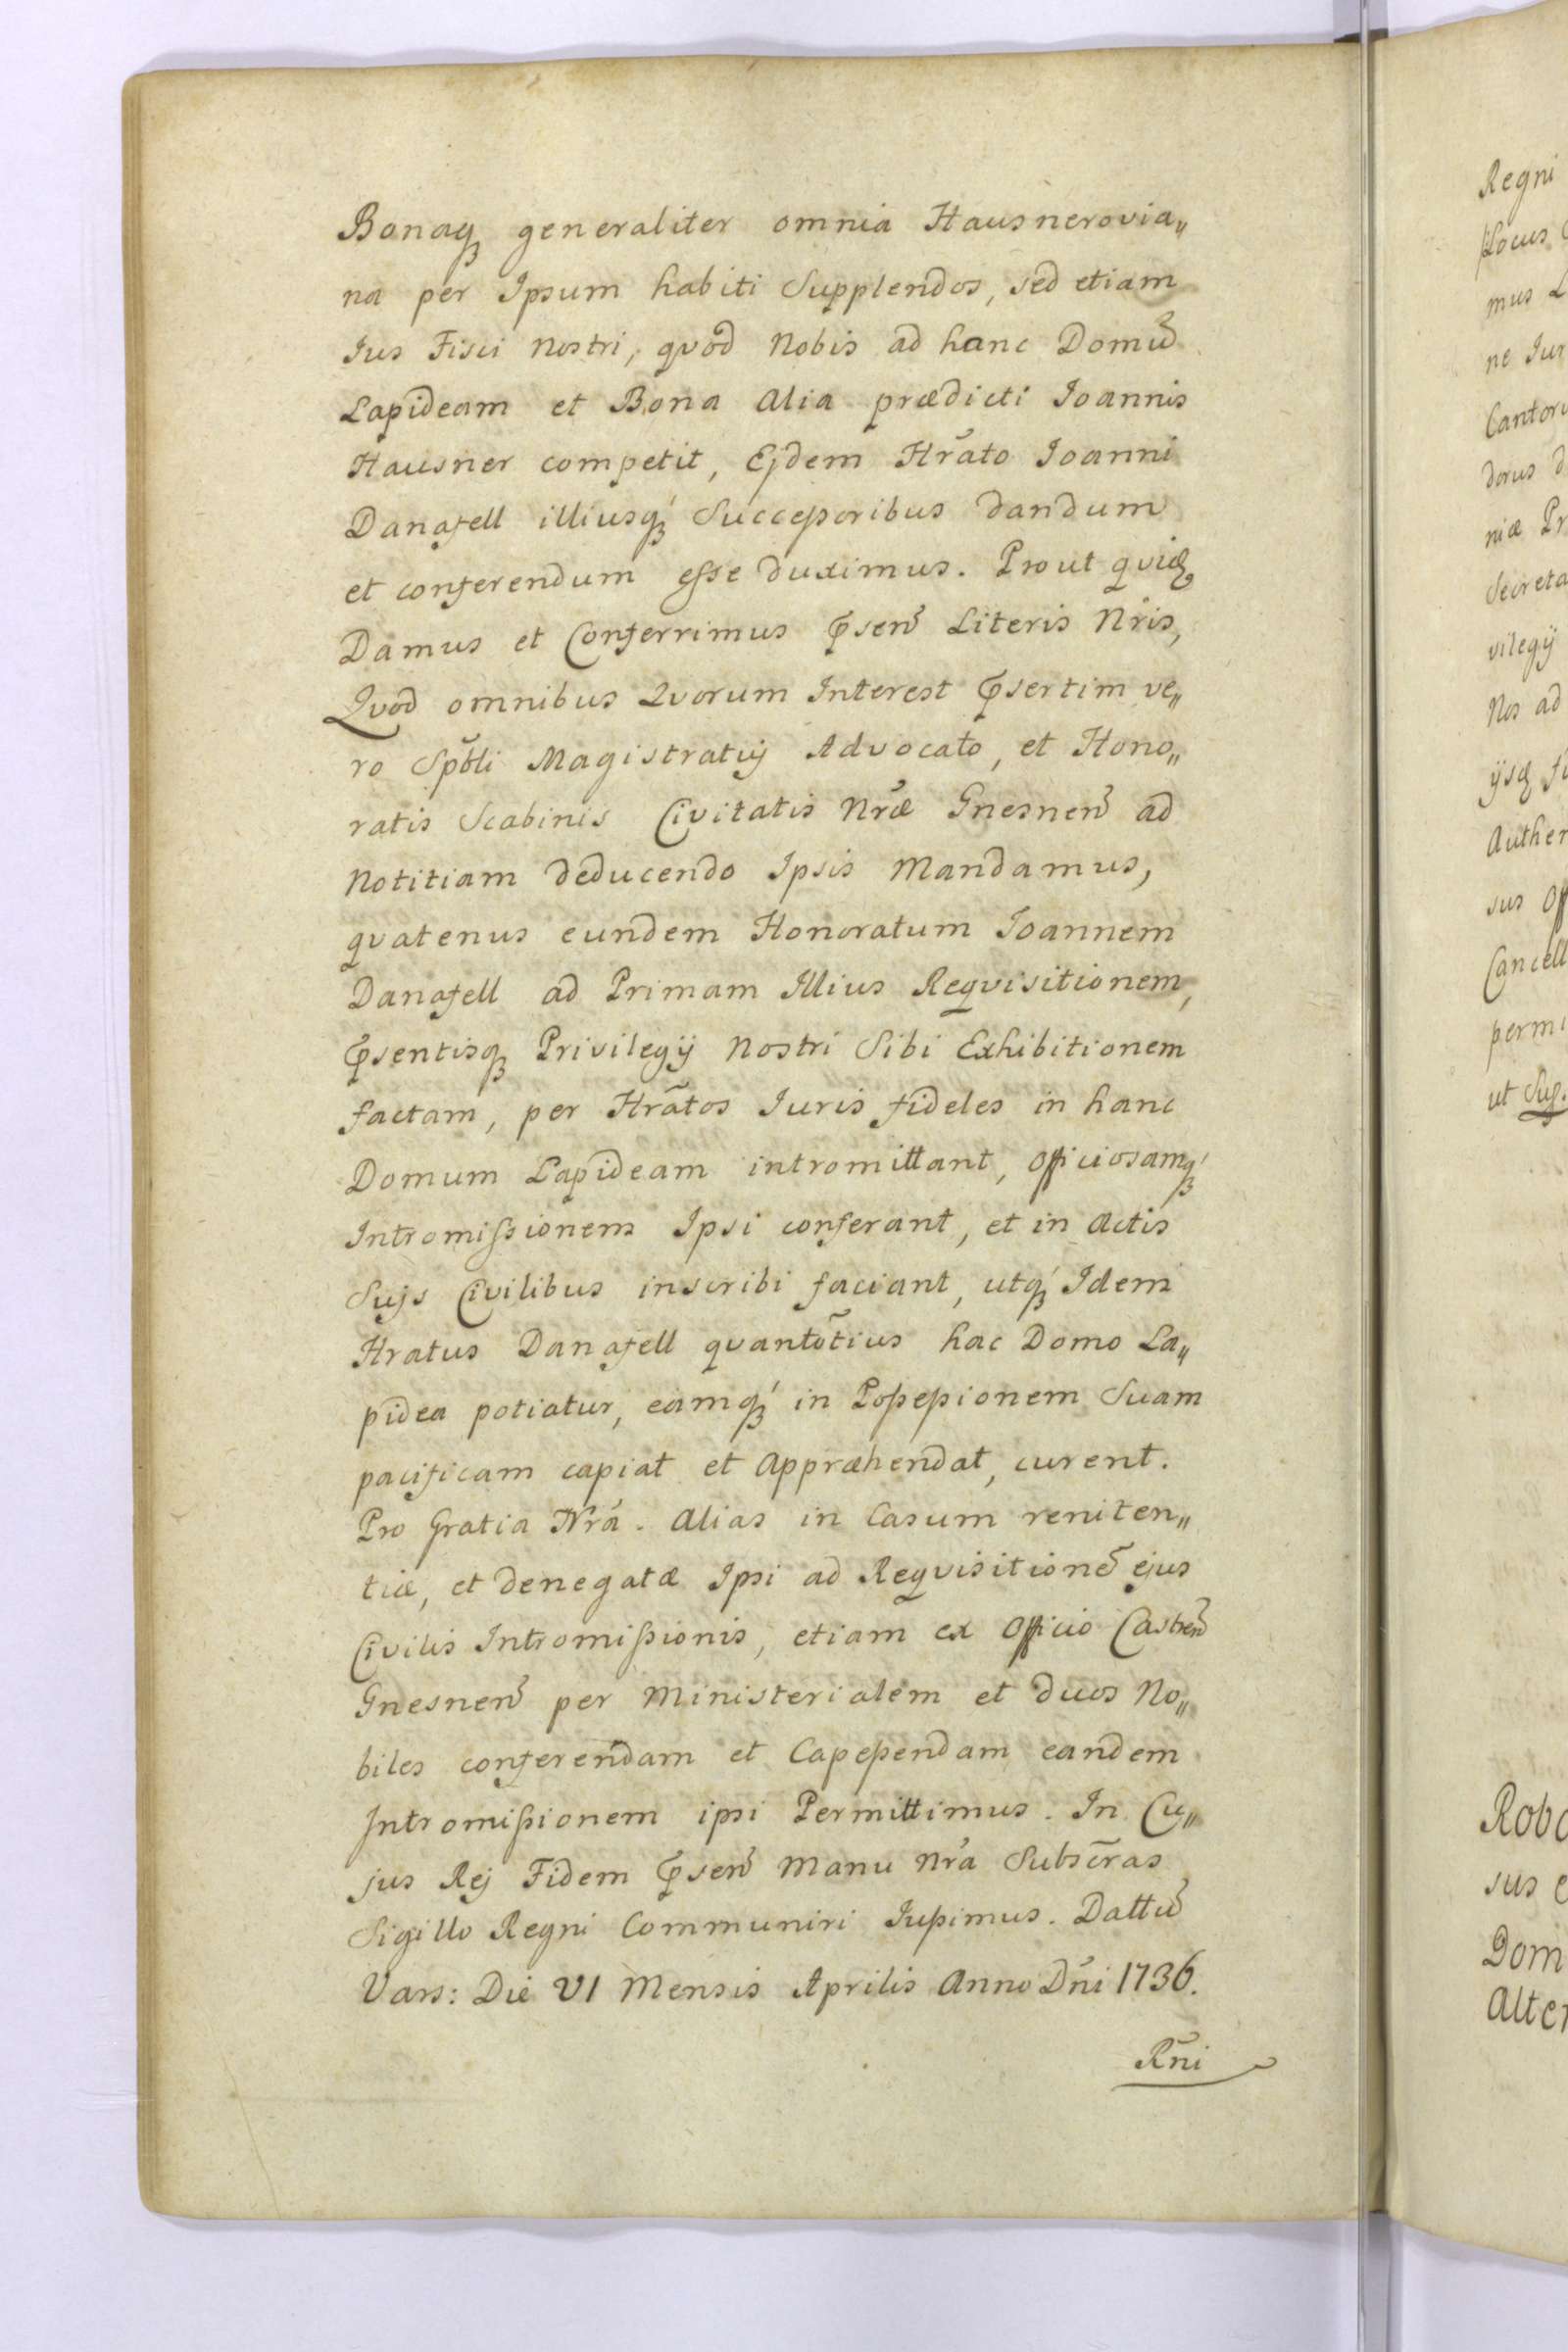 Bonaq₃ generaliter omnia Hausnerovia„
na per Ipsum habiti Supplendos, sed etiam
Ius Fisci Nostri, quod Nobis ad hanc Domũ
Lapideam et Bona Alia prædicti Ioannis
Hausner competit, Ejdem Hrãto Ioanni
Danafell illiusq₃ Succeßoribus dandum
et conferendum eße duximus. Prout quidē
Damus et Conferrimus Pſen̄ Literis Nr̃is,
Quod omnibus Quorum Interest Pſertim ve„
ro Spb̃li Magistratuj Advocato, et Hono„
ratis Scabinis Civitatis Nr̃æ Gnesnen̄ ad
Notitiam deducendo Ipsis Mandamus,
quatenus eundem Honoratum Ioannem
Danafell ad Primam Illius Requisitionem,
Pſentisq₃ Privilegij Nostri Sibi Exhibitionem
factam, per Hrãtos Iuris fideles in hanc
Domum Lapideam intromittant, Officiosamq₃
Intromißionem Ipsi conferant, et in Actis
Sujs Civilibus inscribi faciant, utq₃ Idem
Hratus Danafell quantõtius hac Domo La„
pidea potiatur, eamq₃ in Poßeßionem Suam
pacificam capiat et Appræhendat, curent.
Pro Gratia Nr̃a. Alias in Casum reniten„
tiæ, et denegatæ Ipsi ad Requisitionē ejus
Civilis Intromißionis, etiam ex Officio Castren̄
Gnesnen̄ per Ministerialem et duos No„
biles conferendam et Capeßendam eandem
Intromißionem ipsi Permittimus. In Cu„
jus Rej Fidem Pſen̄ Manu Nr̃a Subsc̃ras
Sigillo Regni Communiri Iußimus. Dattũ
Vars: Die VI Mensis Aprilis Anno Dn̄i 1736.
Rñi
Regni
Locus
mus
ne Iur
Cantor
dorus
niæ Pr
Secreta
vilegij
Nos ad
Auther
sus Off
Cancell
permi
ut Sup.
Robo
sus
Dom
Alter